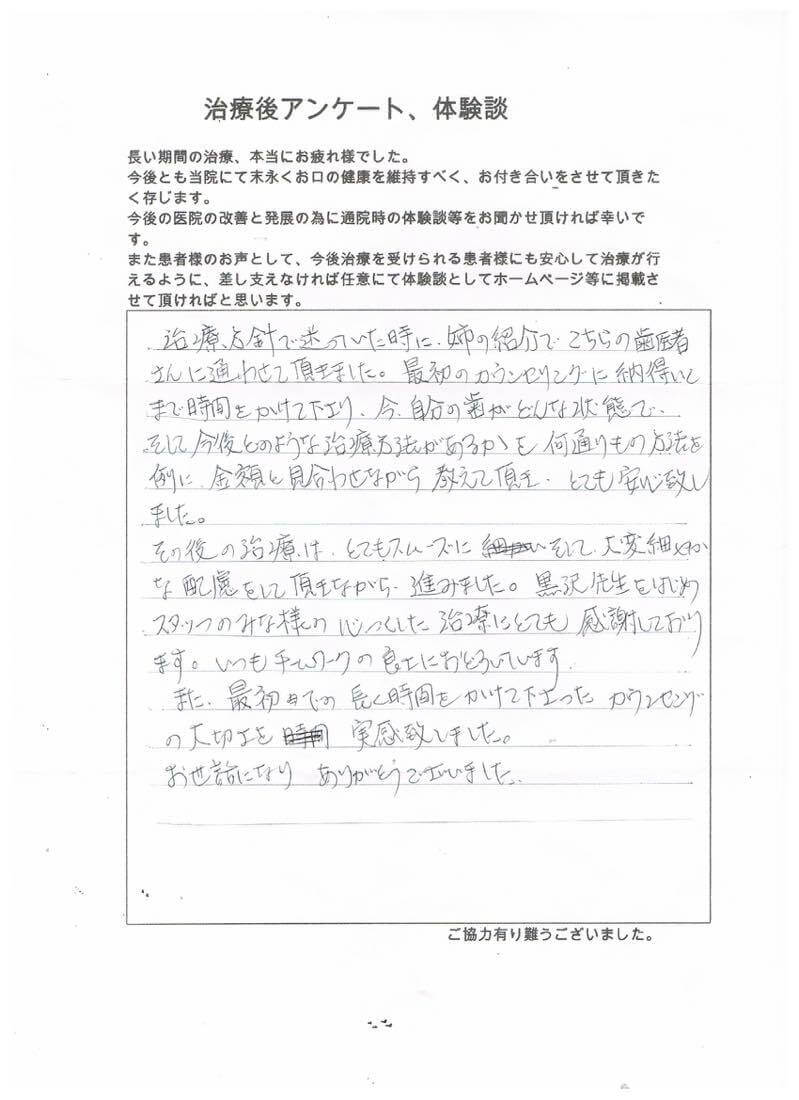 治療後アンケート、体験談
長い期間の治療、本当にお疲れ様でした。
今後とも当院にて末永くお口の健康を維持すべく、お付き合いをさせて頂きた
く存じます。
今後の医院の改善と発展の為に通院時の体験談等をお聞かせ頂ければ幸いで
す。
また患者様のお声として、今後治療を受けられる患者様にも安心して治療が行
えるように、差し支えなければ任意にて体験談としてホームページ等に掲載さ
せて頂ければと思います。
治療方針で迷っていた時に、姉の紹介でこちらの歯医者
さんに通わせて頂きました。最初のカウンセリングに納得いく
まで時間をかけて下さり、今、自分の歯がどんな状態で、
そして今後どのような治療方法があるかを何通りもの方法を
例に、金額と見合わせながら教えて頂き、とても安心致し
ました。
その後の治療は、とてもスムーズにそして、大変細やか
な配慮をして頂きながら進みました。黒沢先生をはじめ
スタッフのみな様の心づくした治療にとても感謝しており
ます。いつもチームワークの良さにおどろいています。
また、最初の長く時間をかけて下さったカウンセリング
の大切さを実感致しました。
お世話になりありがとうございました。
ご協力有り難うございました。